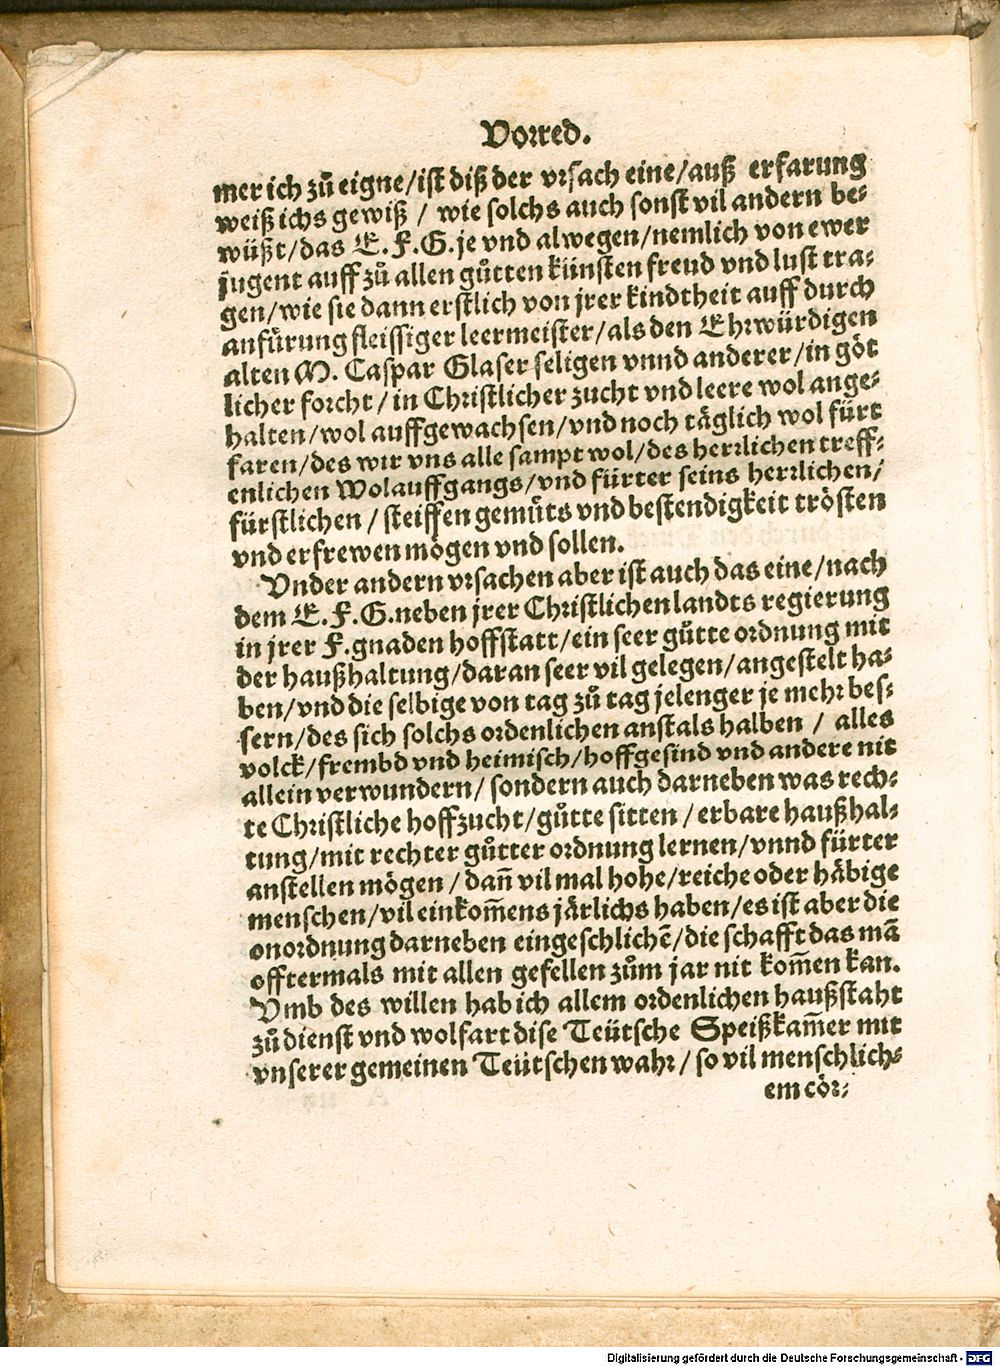 Vorred.
mer ich zů eigne/ist diß der vrsach eine/auß erfarung
weiß ichs gewiß / wie solchs auch sonst vil andern be⸗
wüßt/das E. F. G. je vnd alwegen/nemlich von ewer
jugent auff zů allen gůtten künsten freud vnd lust tra⸗
gen/wie sie dann erstlich von jrer kindtheit auff durch
anfürung fleissiger leermeister/als den Ehrwürdigen
alten M. Caspar Glaser seligen vnnd anderer/in göt
licher forcht/in Christlicher zucht vnd leere wol ange⸗
halten/wol auffgewachsen/vnd noch täglich wol fürt
faren/des wir vns alle sampt wol/des herrlichen treff⸗
enlichen Wolauffgangs/vnd fürter seins herrlichen/
fürstlichen / steiffen gemüts vnd bestendigkeit trösten
vnd erfrewen mögen vnd sollen.
Vnder andern vrsachen aber ist auch das eine/nach
dem E. F. G. neben jrer Christlichen landts regierung
in jrer F. gnaden hoffstatt/ein seer gůtte ordnung mit
der haußhaltung/daran seer vil gelegen/angestelt ha⸗
ben/vnd die selbige von tag zů tag je lenger je mehr bes⸗
sern/des sich solchs ordenlichen anstals halben / alles
volck/frembd vnd heimisch/hoffgesind vnd andere nit
allein verwundern/ sondern auch darneben was rech⸗
te Christliche hoffzucht/gůtte sitten / erbare haußhal⸗
tung/mit rechter gůtter ordnung lernen/vnnd fürter
anstellen mögen / dañ vil mal hohe/reiche oder häbige
menschen/vil einkom̄ens järlichs haben/es ist aber die
onordnung darneben eingeschlichẽ/die schafft das mã
offtermals mit allen gefellen zům jar nit kom̄en kan.
Vmb des willen hab ich allem ordenlichen haußstaht
zů dienst vnd wolfart dise Teütsche Speißkam̄er mit
vnserer gemeinen Teütschen wahr/ so vil menschlich⸗
em cör⸗
Digitalisierung gefördert durch die Deutsche Forschungsgemeinschaft - DFG